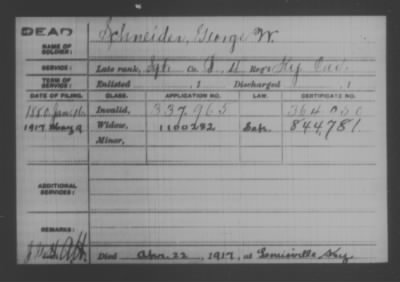 DEAD
NAME OF SOLDIER: Schneider, George W.
SERVICE: Late rank, Co. Reg't Ky. Cav.
TERM OF SERVICE: Enlisted , 1 Discharged , 1
DATE OF FILING. CLASS. APPLICATION NO. LAW. CERTIFICATE NO.
1880 Jan Invalid, 337,965 364
1917 May 9 Widow, 1100282 844,781
Minor,
ADDITIONAL SERVICES:
REMARKS:
Died Apr. 22, 1917, at Louisville Ky